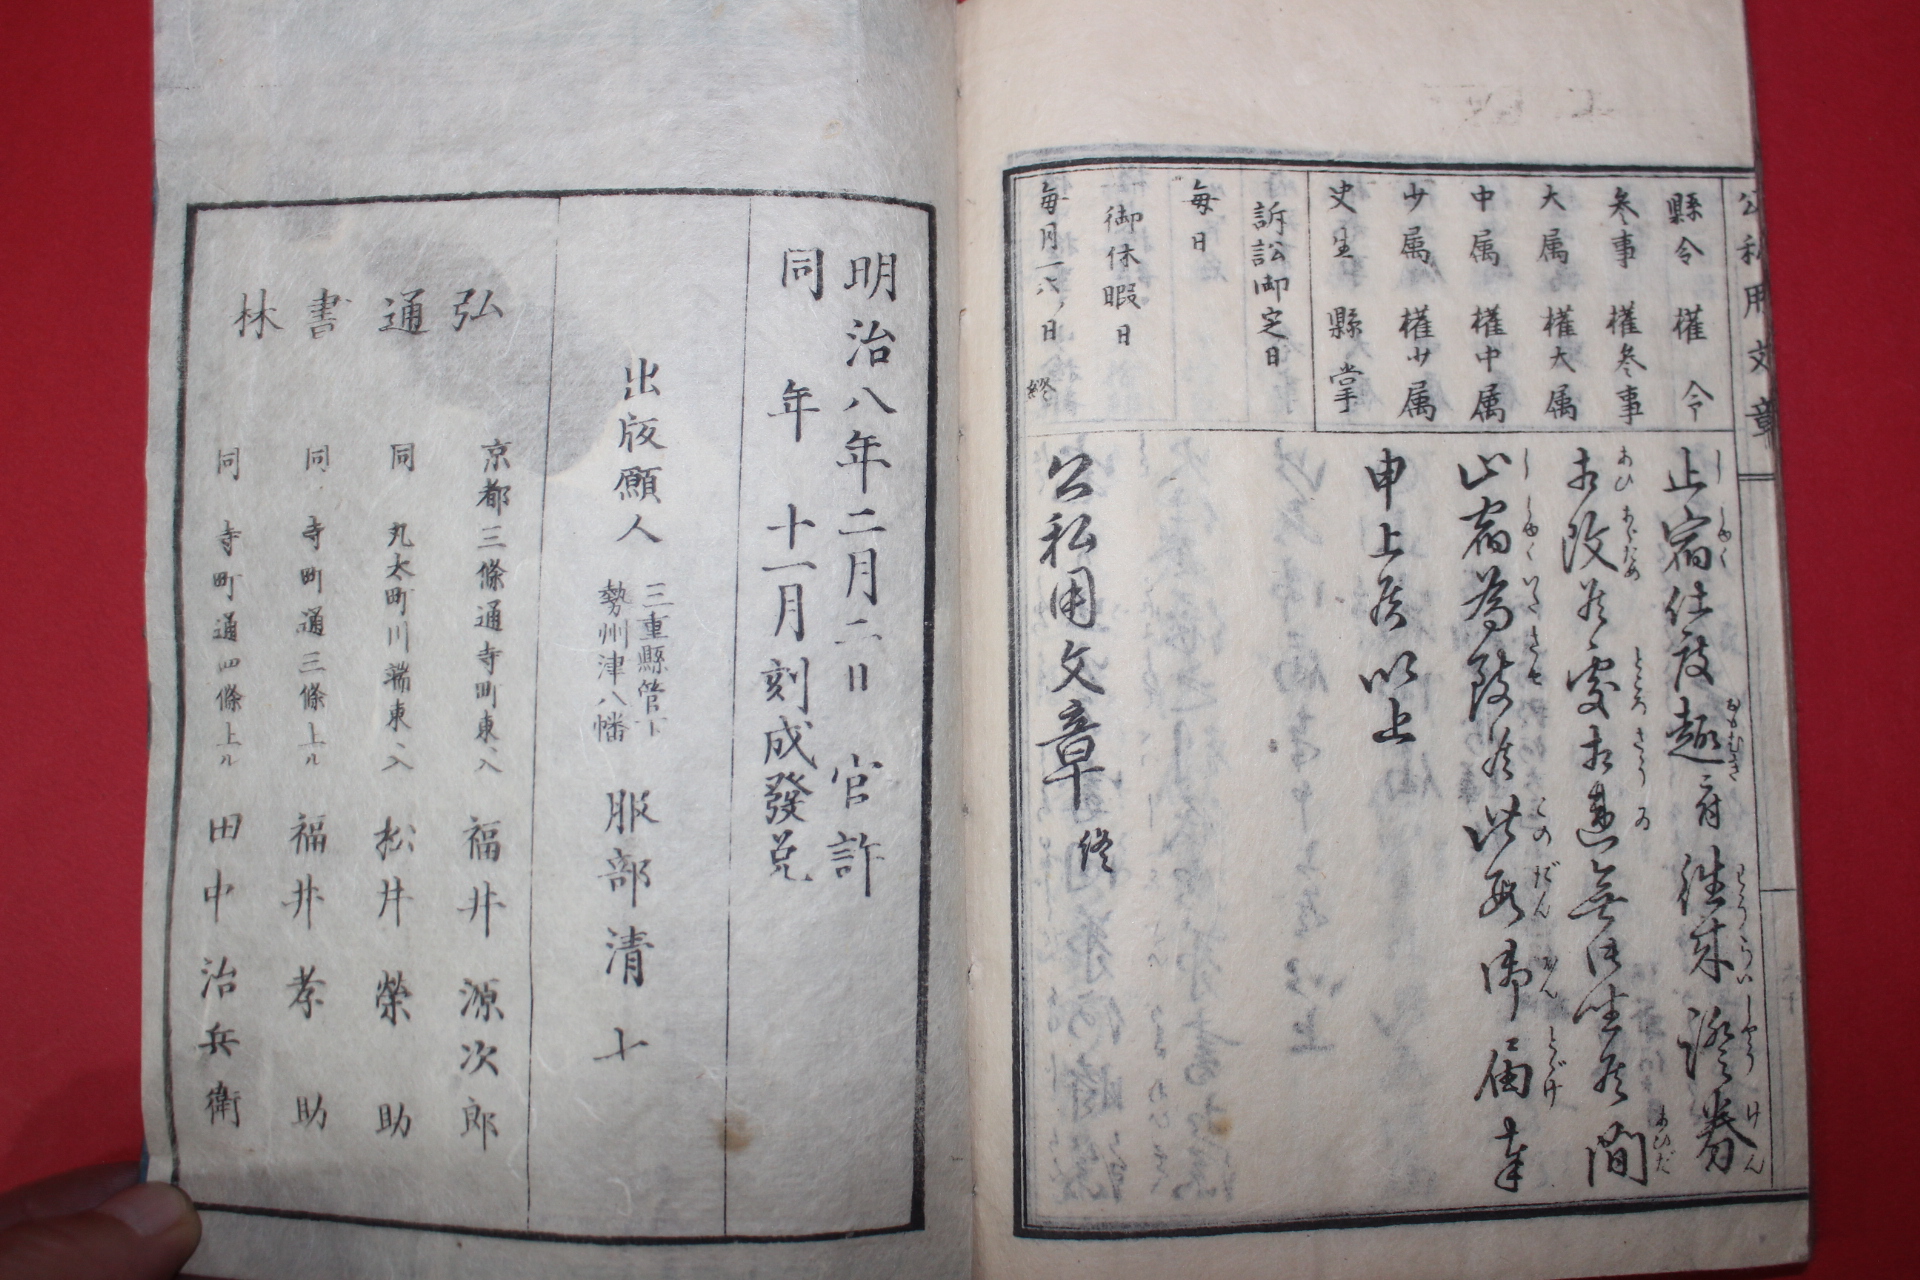 公私用文章
縣令 權令
参事 權参事
大属 權大属
中属 權中属
少属 權少属
史生 縣掌
訴訟御定日
毎日
御休暇日
毎月一六ノ日 終
止宿仕度趣ニ付往来證券
相改候處相違無御坐候間
止宿為致候此段御届奉
申上候以上
公私用文章 終
明治八年二月二日 官許
同 年 十一月刻成發兌
出版願人 三重縣管下 勢州津八幡 服部清十
弘通書林
京都三條通寺町東入 福井源次郎
同 丸太町川端東入 松井榮助
同 寺町通三條上ル 福井孝助
同 寺町通四條上ル 田中治兵衛